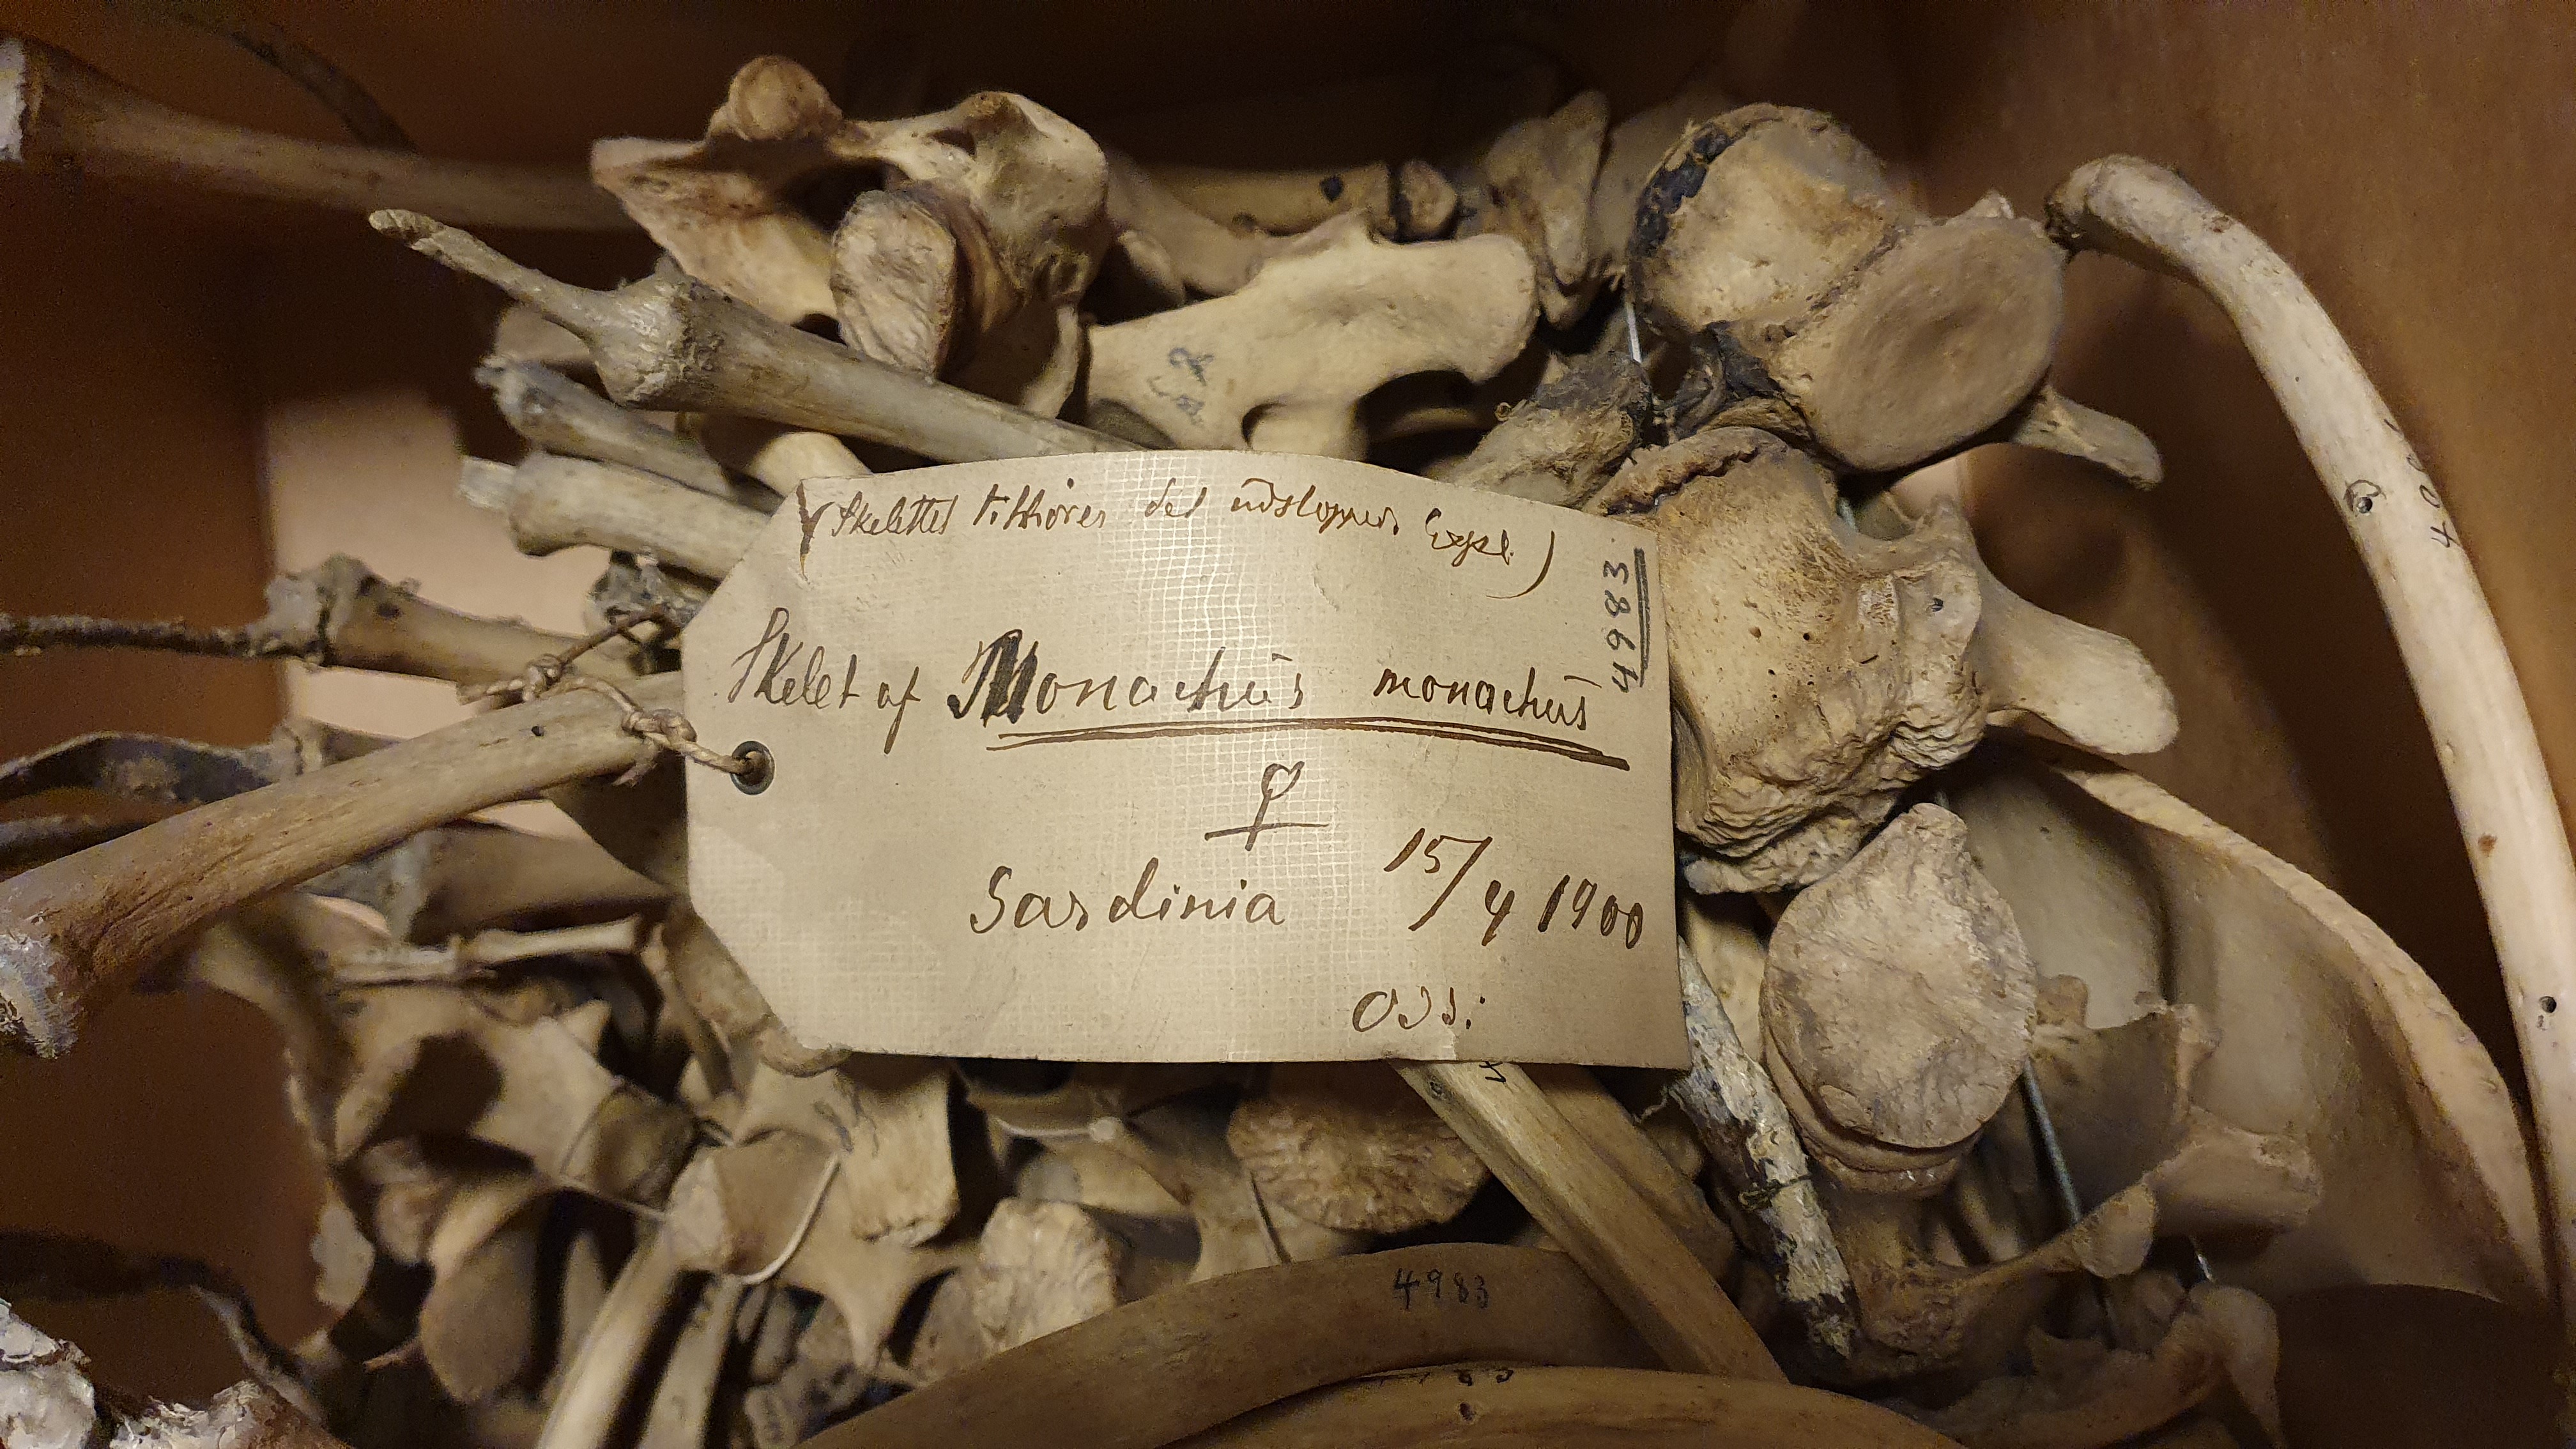 (Skelettet tilhører det udstoppede Expl.)
4983
Skelet af Monachus monachus
♀
Sardinia 15/4 1900
4983